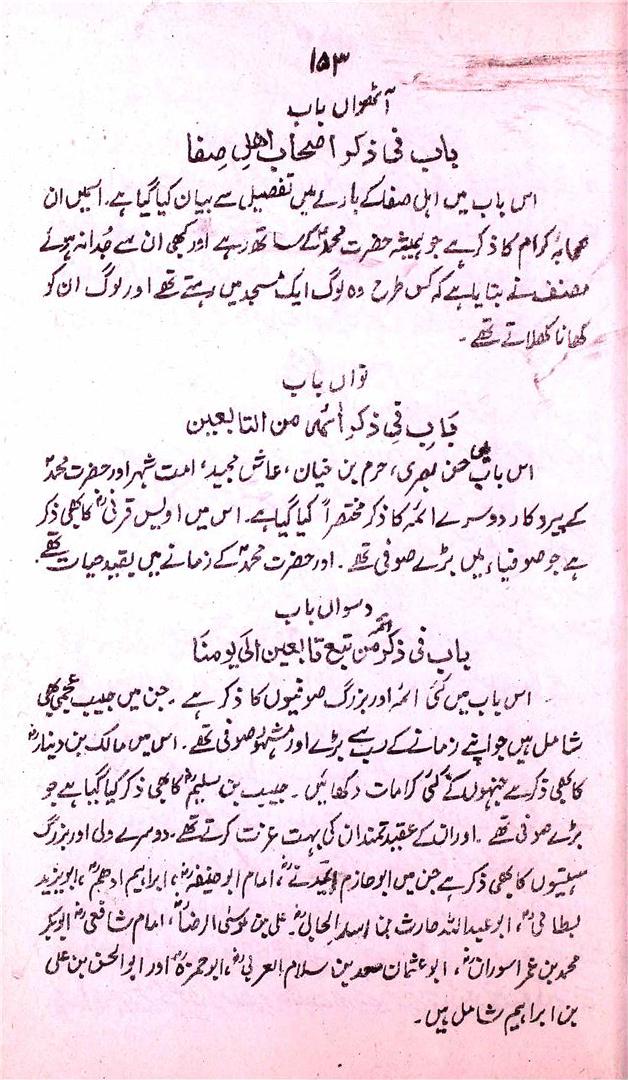 ۱۵۳
آٹھواں باب
باب فی ذکر اصحاب اھلِ صِفا
اس باب میں اہل صفا کے بارے میں تفصیل سے بیان کیا گیا ہے۔ اسمیں ان
صحابۂ کرام کا ذکر ہے جو ہمیشہ حضرت محمدؐ کے ساتھ رہے اور کبھی ان سے جُدا نہ ہوئے
مصنف نے بتایا ہے کہ کس طرح وہ لوگ ایک مسجد میں رہتے تھے اور لوگ ان کو
کھانا کھلاتے تھے۔
نواں باب
بَابِ فِی ذکرِ من التابعین
اس باب میں حسن بصری، حرم بن حیان، امت شہر اور حضرت محمدؐ
کے پیروکار دوسرے ائمہ کا ذکر مختصراً کیا گیا ہے۔ اس میں اویس قرنیؓ کا بھی ذکر
ہے جو صوفیاء میں بڑے صوفی تھے۔ اور حضرت محمدؐ کے زمانے میں بقید حیات تھے۔
دسواں باب
باب فی ذکر ائمہ من تبع تابعین الیٰ یومنَا
اس باب میں کئی ائمہ اور بزرگ صوفیوں کا ذکر ہے۔ جن میں حبیب عجمیؒ بھی
شامل ہیں جو اپنے زمانے کے سب سے بڑے اور مشہور صوفی تھے۔ اس میں مالک بن دینارؒ
کا بھی ذکر ہے جنہوں نے کئی کرامات دکھائیں۔ حبیب بن سلیمؒ کا بھی ذکر کیا گیا ہے جو
بڑے صوفی تھے۔ اور ان کے عقیدتمند ان کی بہت عزت کرتے تھے۔ دوسرے ولی اور بزرگ
ہستیوں کا بھی ذکر ہے جن میں ابو حازم المدنیؒ، امام ابو حنیفہؒ، ابراہیم ادھمؒ، ابو یزید
بسطامیؒ، ابو عبداللہ حارث بن اسد الحابیؒ۔ علی بن موسیٰ الرضاؒ، امام شافعیؒ ابو بکر
محمد بن عمر اسوراںؒ، ابو عثمان سعد بن سلام العربیؒ، ابو حمزہؒ اور ابو الحسن بن علی
بن ابراہیم شامل ہیں۔